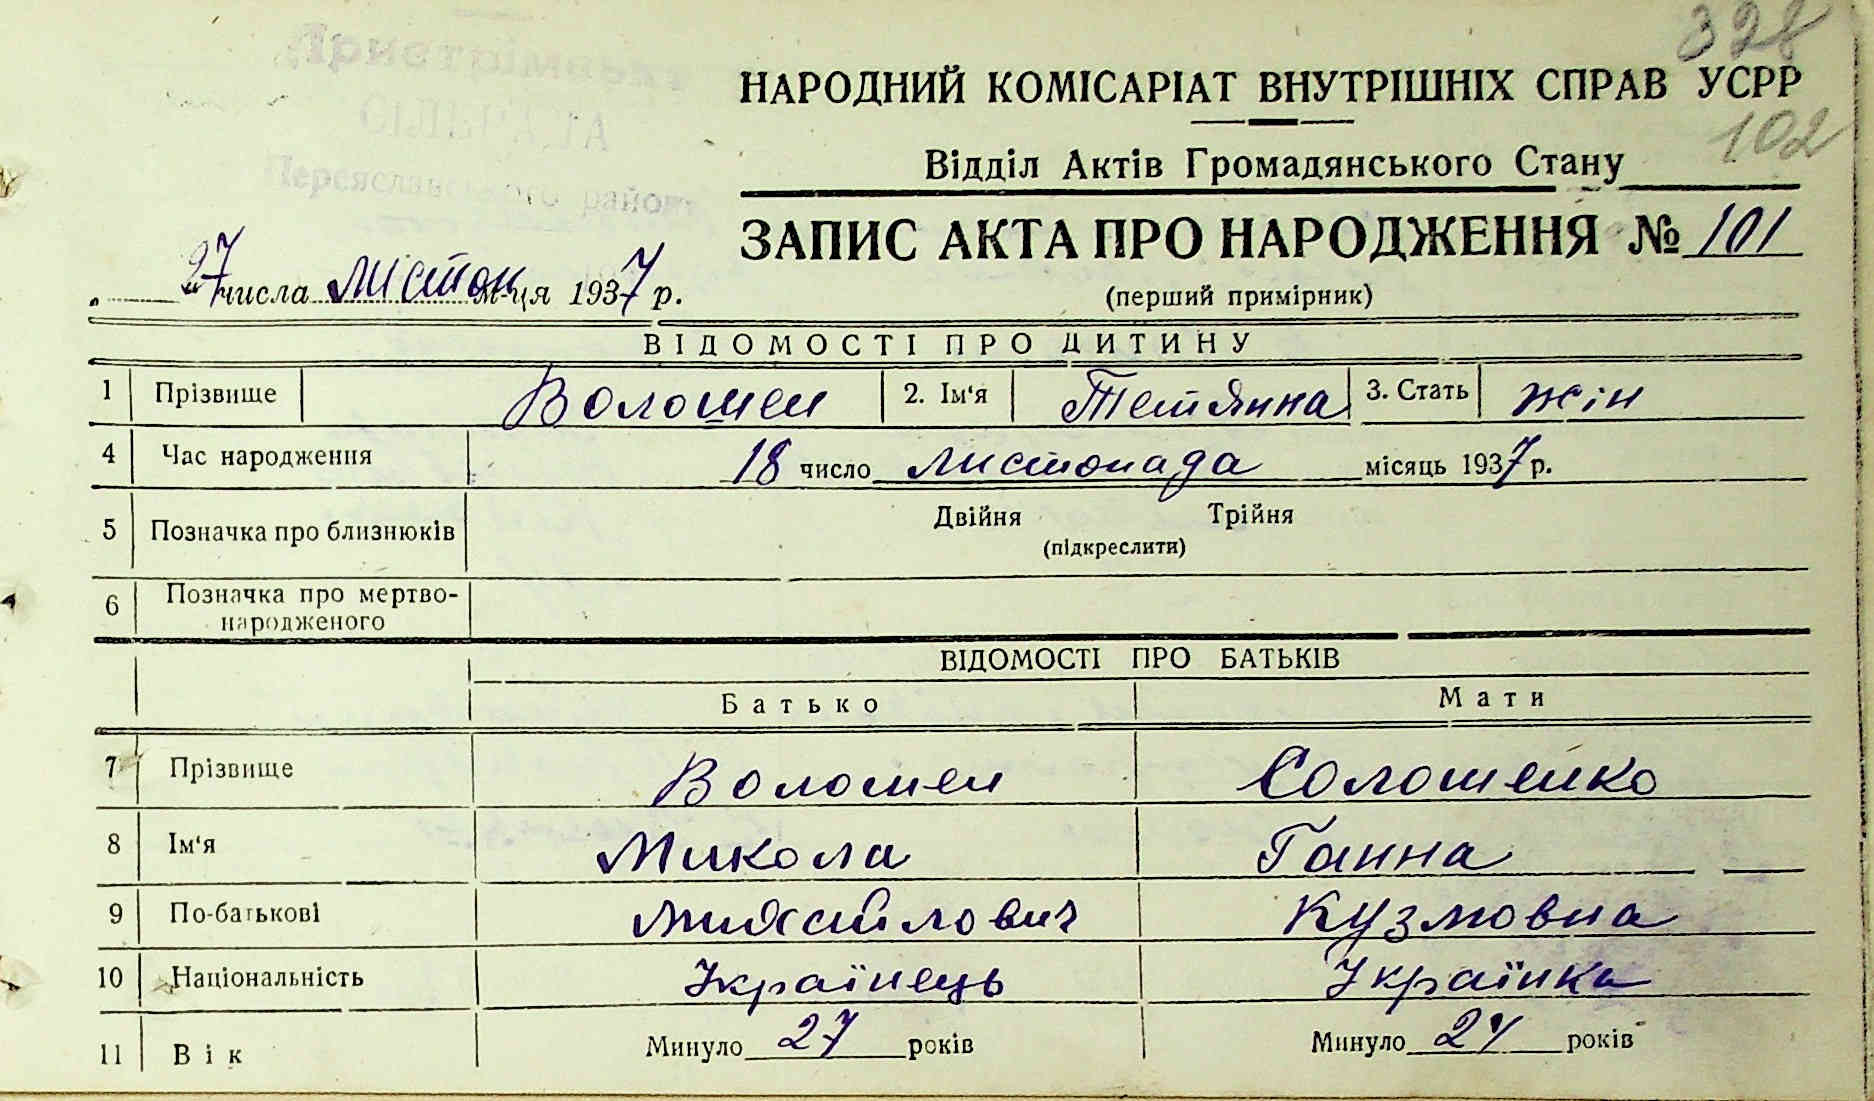 328
НАРОДНИЙ КОМІСАРІАТ ВНУТРІШНІХ СПРАВ УСРР
102
Відділ Актів Громадянського Стану
ЗАПИС АКТА ПРО НАРОДЖЕННЯ № 101
„ 27 числа листоп м-ця 1937 р.
(перший примірник)
ВІДОМОСТІ ПРО ДИТИНУ
1 Прізвище Волошен 2. Ім'я Тетянна 3. Стать жін
4 Час народження 18 число листопада місяць 1937 р.
5 Позначка про близнюків Двійня Трійня
(підкреслити)
6 Позначка про мертво-
народженого
ВІДОМОСТІ ПРО БАТЬКІВ
Батько Мати
7 Прізвище Волошен Солошенко
8 Ім'я Микола Ганна
9 По-батькові Михайлович Кузмовна
10 Національність Українець Українка
11 Вік Минуло 27 років Минуло 24 років